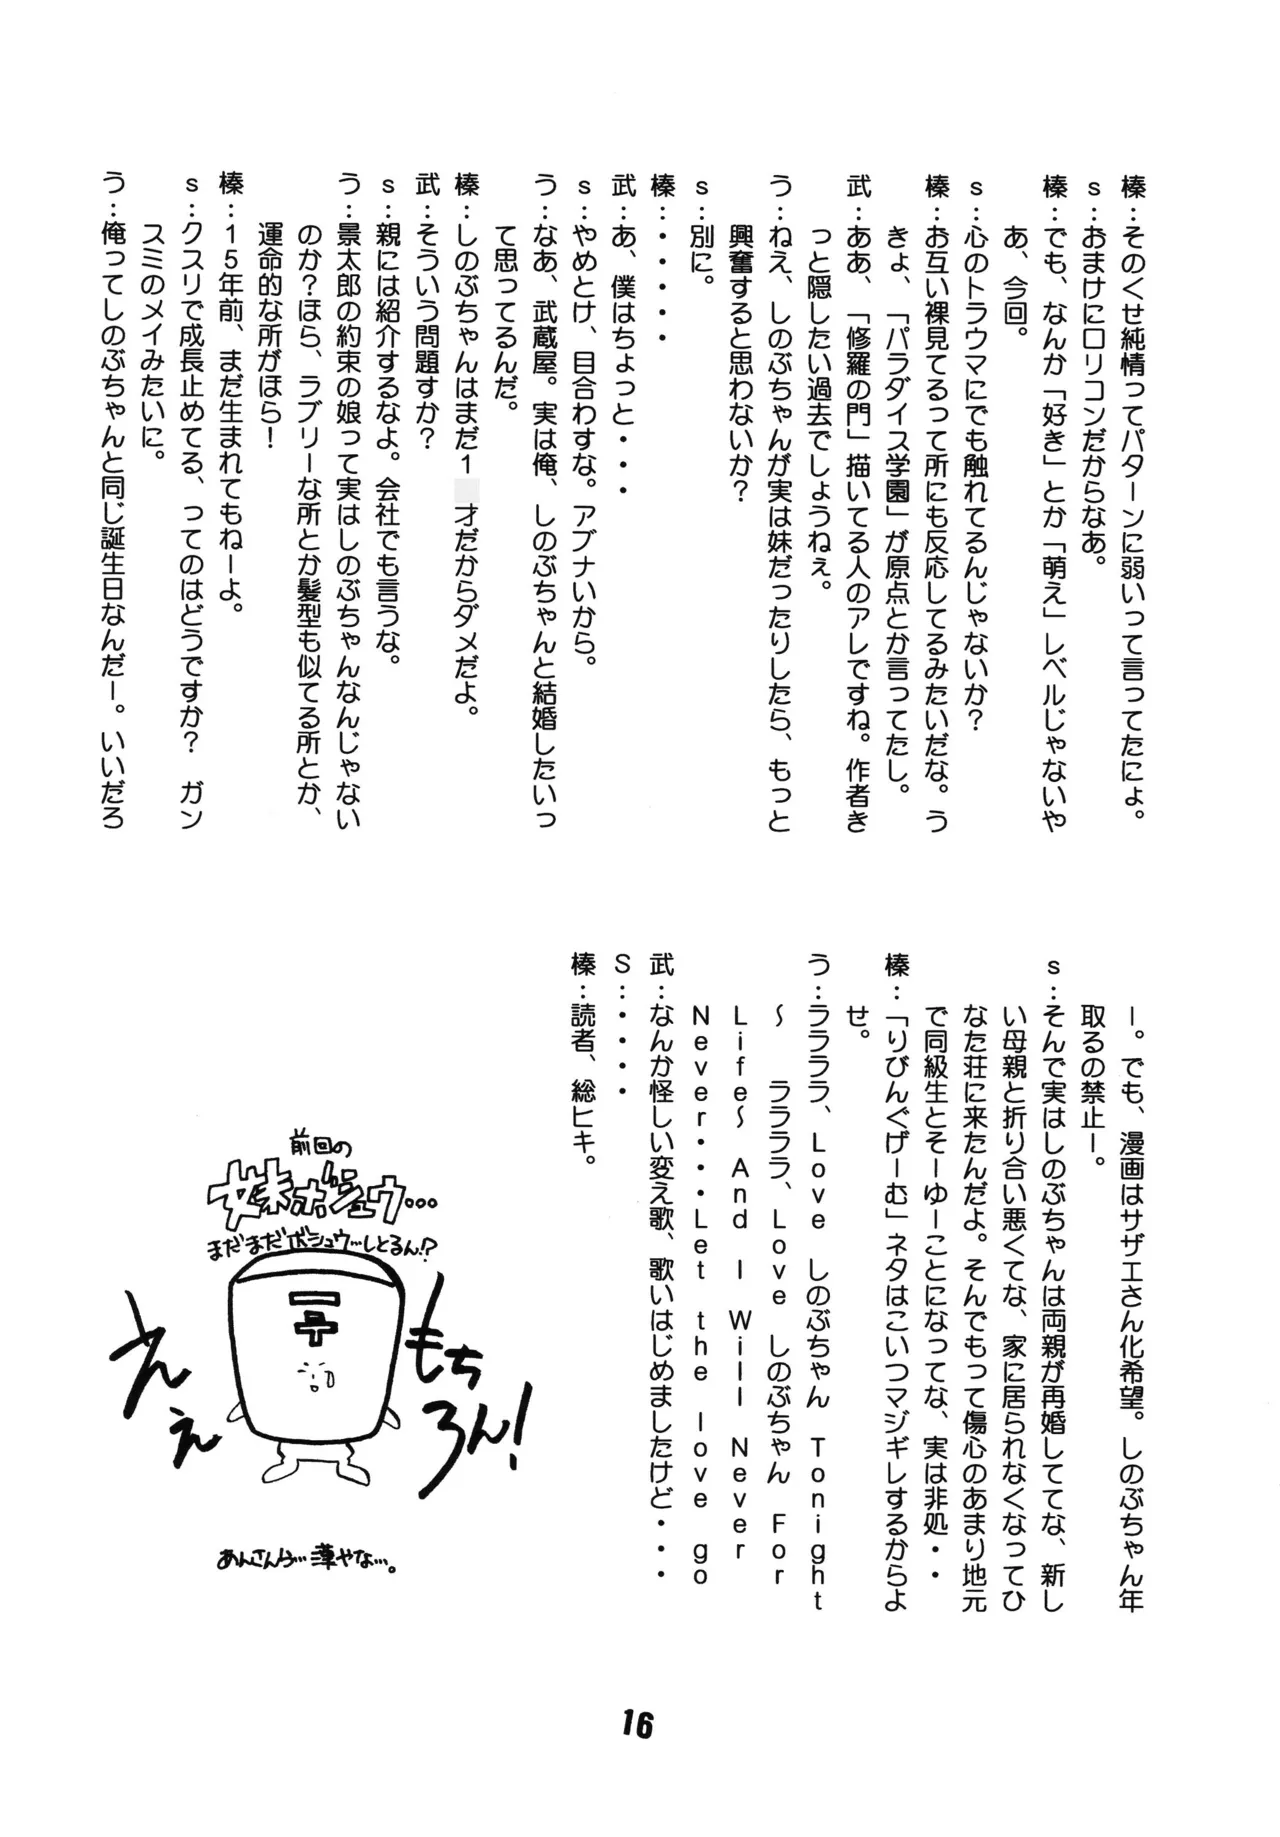 榛：そのくせ純情ってパターンに弱いって言ってたにょ。
s：おまけにロリコンだからなあ。
榛：でも、なんか「好き」とか「萌え」レベルじゃないや
あ、今回。
s：心のトラウマにでも触れてるんじゃないか？
榛：お互い裸見てるって所にも反応してるみたいだな。う
きょ、「パラダイス学園」が原点とか言ってたし。
武：ああ、「修羅の門」描いてる人のアレですね。作者き
っと隠したい過去でしょうねぇ。
う：ねえ、しのぶちゃんが実は妹だったりしたら、もっと
興奮すると思わないか？
s：別に。
榛：・・・・・
武：あ、僕はちょっと・・・
s：やめとけ、目合わすな。アブナいから。
う：なあ、武蔵屋。実は俺、しのぶちゃんと結婚したいっ
て思ってるんだ。
榛：しのぶちゃんはまだ１ 才だからダメだよ。
武：そういう問題すか？
s：親には紹介するなよ。会社でも言うな。
う：景太郎の約束の娘って実はしのぶちゃんなんじゃない
のか？ほら、ラブリーな所とか髪型も似てる所とか、
運命的な所がほら！
榛：１５年前、まだ生まれてもねーよ。
s：クスリで成長止めてる、ってのはどうですか？ ガン
スミのメイみたいに。
う：俺ってしのぶちゃんと同じ誕生日なんだー。いいだろ
ー。でも、漫画はサザエさん化希望。しのぶちゃん年
取るの禁止ー。
s：そんで実はしのぶちゃんは両親が再婚しててな、新し
い母親と折り合い悪くてな、家に居られなくなってひ
なた荘に来たんだよ。そんでもって傷心のあまり地元
で同級生とそーゆーことになってな、実は非処・・
榛：「りびんぐげーむ」ネタはこいつマジギレするからよ
せ。
う：ララララ、Love しのぶちゃん Tonight
～ ララララ、Love しのぶちゃん For
Life～ And I Will Never
Never・・・Let the love go
武：なんか怪しい変え歌、歌いはじめましたけど・・・
S：・・・・
榛：読者、総ヒキ。
前回の
妹ボシュウ…
まだまだボシュウ…しとるん!?
もち
ろん！
えぇ
あんさんら…薄やな…。
16